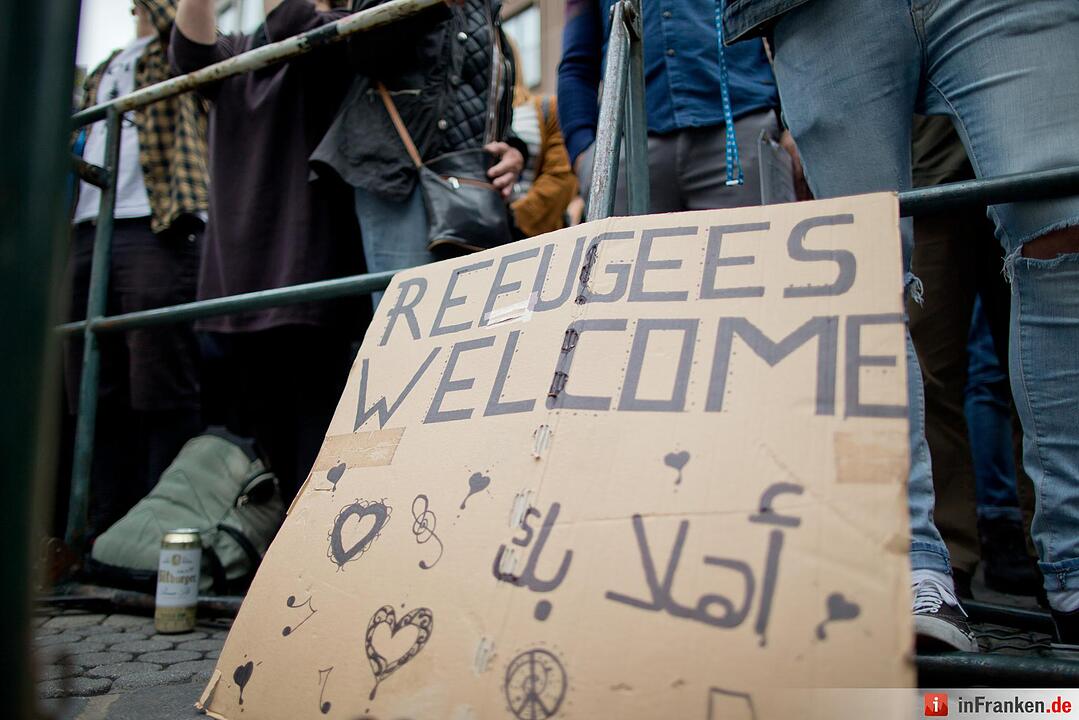 REFUGEES
WELCOME
أهلا بك
Bitburger
inFranken.de